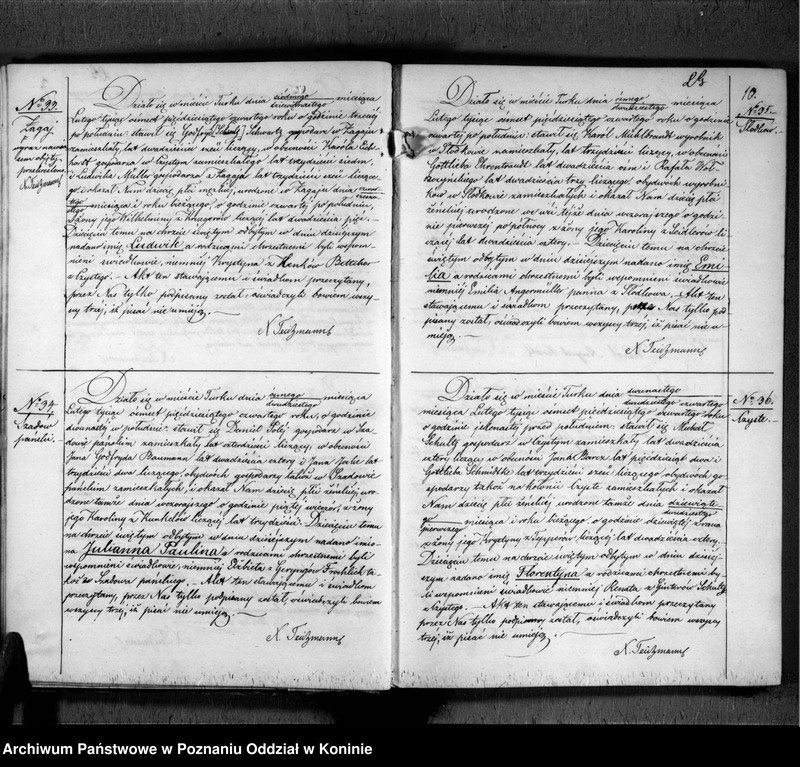 No 33.
Zagaj
Działo się w mieście Turku dnia siódmego/dziewiętnastego miesiąca
Lutego tysiąc ośmset pięćdziesiątego czwartego roku o godzinie trzeciej
po południu: stawił się Gottfryd Schwartz gospodarz w Zagaju
zamieszkały, lat dwadzieścia sześć liczący, w obecności Karola
gospodarza w Czystem zamieszkałego lat trzydzieści siedm,
i Ludwika Muller gospodarza z Zagaja lat trzydzieści sześć liczące-
go: i okazał Nam dziecię płci męzkiej, urodzone w Zagaju dnia
miesiąca i roku bieżącego, o godzinie czwartej po południu,
z żony jego Wilhelminy z Kriegerów liczącej lat dwadzieścia pięć.
Dziecięciu temu na chrzcie świętym odbytym w dniu dzisiejszym
nadano imię Ludwik a rodzicami chrzestnemi byli wspom-
nieni świadkowie, niemniej Krystyna z Henków Bettcher
z Czystego. Akt ten stawającemu i świadkom przeczytany,
przez Nas tylko podpisany został, oświadczyli bowiem wszy-
scy trzej, iż pisać nie umieją.
N. Teitzmann
No 34
Szadow
pański.
Działo się w mieście Turku dnia ósmego/dwudziestego miesiąca
Lutego tysiąc ośmset pięćdziesiątego czwartego roku, o godzinie
dwunastej w południe: stawił się Daniel gospodarz w Sza-
dowie pańskim zamieszkały lat czterdzieści liczący, w obecności
Jana Godfryda Baumann lat dwadzieścia cztery i Jana lat
trzydzieści dwa liczącego, obydwóch gospodarzy także w Szadowie
pańskim zamieszkałych, i okazał Nam dziecię płci żeńskiej uro-
dzone tamże dnia wczorajszego o godzinie piątej wieczór, z żony
jego Karoliny z Kunkelów liczącej lat trzydzieści. Dziecięciu temu
na chrzcie świętym odbytym w dniu dzisiejszym nadano imio-
na Julianna Paulina a rodzicami chrzestnemi byli
wspomnieni świadkowie, niemniej Elżbieta z Geryngów Froehlich ta-
koż z Szadowa pańskiego. Akt ten stawającemu i świadkom
przeczytany, przez Nas tylko podpisany został, oświadczyli bowiem
wszyscy trzej, iż pisać nie umieją.
N. Teitzmann
10.
No 35.
Słodków.
Działo się w mieście Turku dnia ósmego/dwudziestego miesiąca
Lutego tysiąc ośmset pięćdziesiątego czwartego roku o godzinie
czwartej po południu: stawił się Karol Muhlbrandt wyrobnik
w Słodkowie zamieszkały, lat trzydzieści liczący, w obecności
Gottlieba Ehrentraudt lat dwadzieścia ośm i Rafała
lat dwadzieścia trzy liczącego, obydwóch wyrobni-
ków w Słodkowie zamieszkałych i okazał Nam dziecię płci
żeńskiej urodzone we wsi tejże dnia wczorajszego o godzi-
nie pierwszej po północy z żony jego Karoliny z Seidlerów li-
czącej lat dwadzieścia cztery. Dziecięciu temu na chrzcie
świętym odbytym w dniu dzisiejszym nadano imię Emi-
lia a rodzicami chrzestnemi byli wspomnieni świadkowie
niemniej Emilia Angermiller panna z Słodkowa. Akt ten
stawającemu i świadkom przeczytany, przez Nas tylko pod-
pisany został, oświadczyli bowiem wszyscy trzej, iż pisać nie u-
mieją.
N. Teitzmann
No 36.
Czyste.
Działo się w mieście Turku dnia dwunastego/dwudziestego czwartego
miesiąca Lutego tysiąc ośmset pięćdziesiątego czwartego roku
o godzinie jedenastej przed południem: stawił się Michał
Schultz gospodarz w Czystem zamieszkały lat dwadzieścia
cztery liczący w obecności Jana lat pięćdziesiąt dwa i
Gottlieba Schmidtke lat trzydzieści sześć liczącego obydwóch go-
spodarzy także na kolonii Czyste zamieszkałych i okazał
Nam dziecię płci żeńskiej urodzone tamże dnia dziewiąte-
go/dwudziestego pierwszego miesiąca i roku bieżącego: o godzinie dziewiątej z rana
z żony jego Krystyny z liczącej lat dwadzieścia cztery.
Dziecięciu temu na chrzcie świętym odbytym w dniu dzisiej-
szym nadano imię Florentyna a rodzicami chrzestnemi by-
li wspomnieni świadkowie niemniej Renata z Ginterów Schultz
z Czystego. Akt ten stawającemu i świadkom przeczytany
przez Nas tylko podpisany został, oświadczyli bowiem wszyscy
trzej, iż pisać nie umieją.
N. Teitzmann
Archiwum Państwowe w Poznaniu Oddział w Koninie